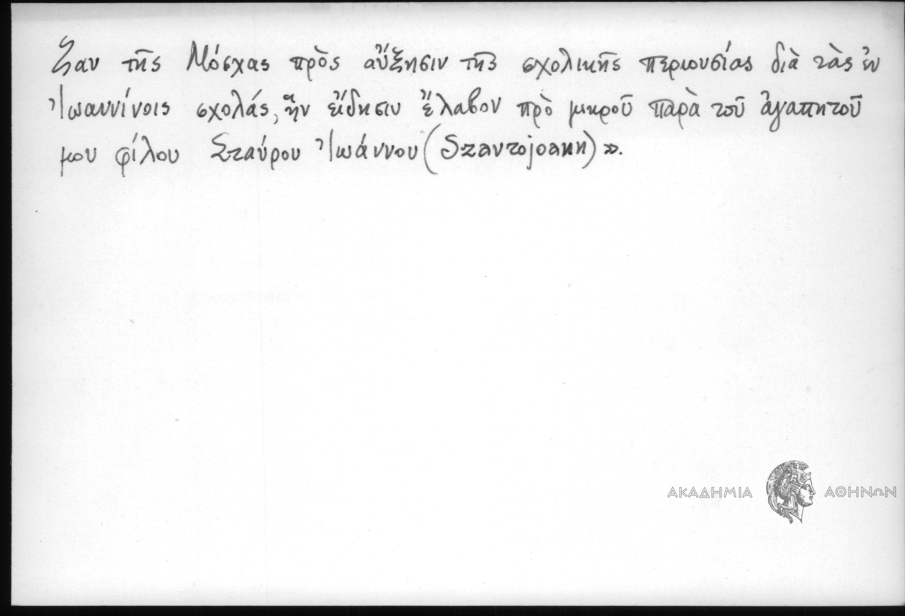 ζαν τῆς Μόσχας πρὸς αὔξησιν τῆς σχολικῆς περιουσίας διὰ τὰς ἐν
Ἰωαννίνοις σχολάς, ἣν εἴδησιν ἔλαβον πρὸ μικροῦ παρὰ τοῦ ἀγαπητοῦ
μου φίλου Σταύρου Ἰωάννου (Stavrojoann) ».
ΑΚΑΔΗΜΙΑ ΑΘΗΝΩΝ